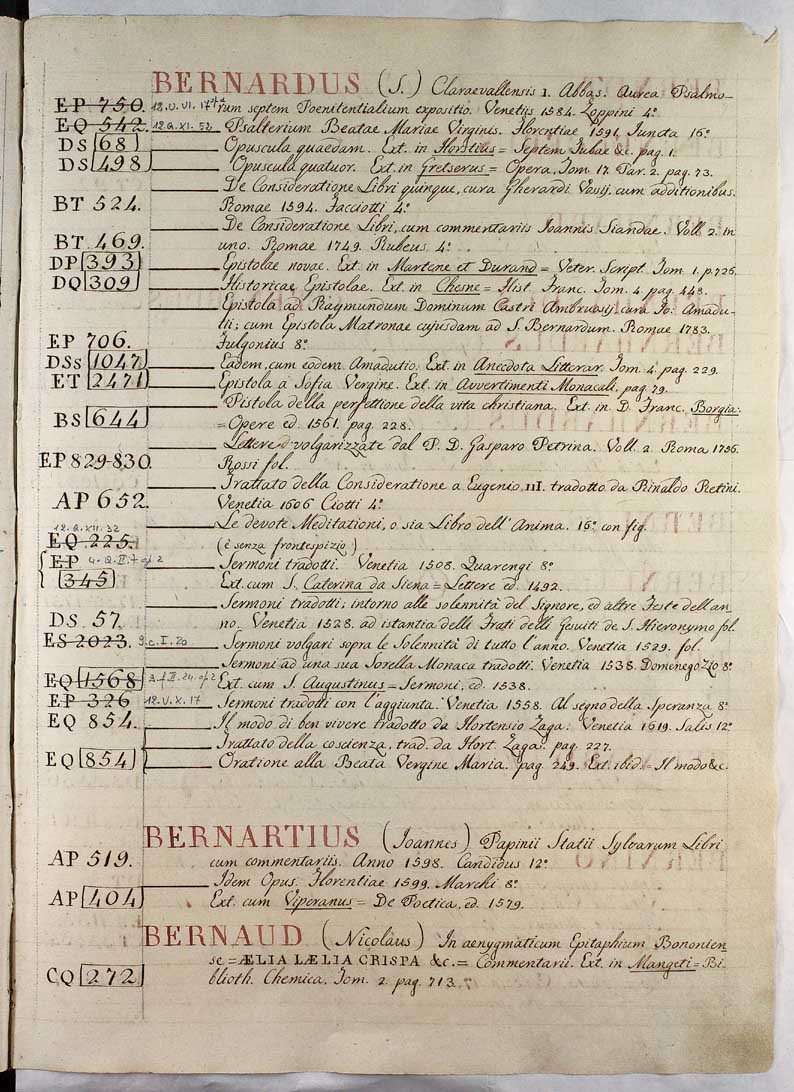 BERNARDUS (S.) Claraevallensis 1. Abbas. Aurea Psalmo-
EP 750. 12.U.VI.17 rum septem Poenitentialium expositio. Venetiis 1584. Zoppini 4º
EQ 542. 12.Q.XI.52 Psalterium Beatae Mariae Virginis. Florentiae 1591. Juncta 16º
DS 68 Opuscula quaedam. Ext. in Horstius = Septem Tubae &c. pag. 1.
DS 498 Opuscula quatuor. Ext. in Gretserus = Opera, Tom. 17. Par. 2. pag. 73.
De Consideratione Libri quinque, cura Gherardi Vossij, cum additionibus.
BT 524. Romae 1594. Facciotti 4º
De Consideratione Libri, cum commentariis Ioannis Siandae. Voll. 2. in
BT 469. uno. Romae 1749. Rubeus 4º
DP 393 Epistolae novae. Ext. in Martene et Durand = Veter. Script. Tom. 1. p. 726.
DQ 309 Historicae Epistolae. Ext. in Chesne = Hist. Franc. Tom. 4. pag. 448.
Epistola ad Raymundum Dominum Castri Ambruosij, cura Io: Amadu-
tii; cum Epistola Matronae cujusdam ad S. Bernardum. Romae 1783.
EP 706. Fulgonius 8º
DSs 1047 Eadem, cum eodem Amadutio. Ext. in Anecdota Litterar. Tom. 4. pag. 229.
ET 2471 Epistola a Sofia Vergine. Ext. in Avvertimenti Monacali, pag. 79.
Pistola della perfettione della vita christiana. Ext. in D. Franc. Borgia:
BS 644 = Opere ed. 1561. pag. 228.
Lettere volgarizzate dal P. D. Gasparo Petrina. Voll. 2. Roma 1736.
EP 829-830. Rossi fol.
Trattato della Consideratione a Eugenio III. tradotto da Rinaldo Retini.
AP 652. Venetia 1606 Ciotti 4º
Le devote Meditationi, o sia Libro dell'Anima. 16º con fig.
12.Q.XII.32
EQ 225. (è senza frontespizio)
EP 4.Q.II.7 op 2 Sermoni tradotti. Venetia 1508. Quarengi 8º
345 Ext. cum S. Caterina da Siena = Lettere ed. 1492.
Sermoni tradotti; intorno alle solennità del Signore, ed altre Feste dell'an
DS 57. no. Venetia 1528. ad istantia delli Frati delli Gesuiti de S. Hieronymo fol.
ES 2023. 9.C.I.20 Sermoni volgari sopra le Solennità di tutto l'anno. Venetia 1529. fol.
Sermoni ad una sua Sorella Monaca tradotti. Venetia 1538. Domenego Zio 8º
EQ 1568 Ext. cum S. Augustinus = Sermoni, ed. 1538.
EP 326 12.V.X.17 Sermoni tradotti con l'aggiunta. Venetia 1558. Al segno della Speranza 8º
EQ 854. Il modo di ben vivere tradotto da Hortensio Zaga. Venetia 1619. Salis 12º
Trattato della coscienza, trad. da Hort. Zaga. pag. 227.
EQ 854 Oratione alla Beata Vergine Maria. pag. 249. Ext. ibid. = Il modo &c.
BERNARTIUS (Ioannes) Papinii Statii Sylvarum Libri
AP 519. cum commentariis. Anno 1598. Candidus 12º
Idem Opus. Florentiae 1599. Marchi 8º
AP 404 Ext. cum Viperanus = De Poetica, ed. 1579.
BERNAUD (Nicolaus) In aenygmaticum Epitaphium Bononien-
se = ÆLIA LÆLIA CRISPA &c. = Commentarii. Ext. in Mangeti = Bi-
CQ 272 blioth. Chemica, Tom. 2. pag. 713.